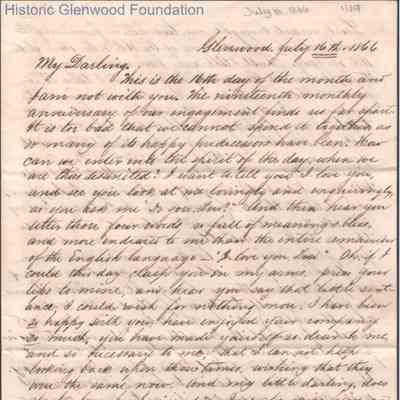 Historic Glenwood Foundation
July 16, 1866
Glenwood, July 16th, 1866
My Darling,
This is the 16th day of the month and
I am not with you. The nineteenth monthly
anniversary of our engagement finds us far apart.
It is too bad that we cannot spend it together, as
so many of its happy predecessors have been. How
can we enter into the spirit of the day, when we
are thus separated? I want to tell you I love you,
and see you look at me lovingly and enquiringly,
as you ask me "Do you, Lou?" And then hear you
utter those four words, so full of meaning & bliss,
and more endeared to me than the entire remainder
of the English language — "I love you Lou." Oh, if I
could this day clasp you in my arms, press your
lips to mine, and hear you say that little sent-
ence, I could wish for nothing more. I have been
so happy with you, have enjoyed your company
so much, you have made yourself so dear to me,
and so necessary to me, that I can not help
looking back upon those times, wishing that they
were the same now. And my little darling, does